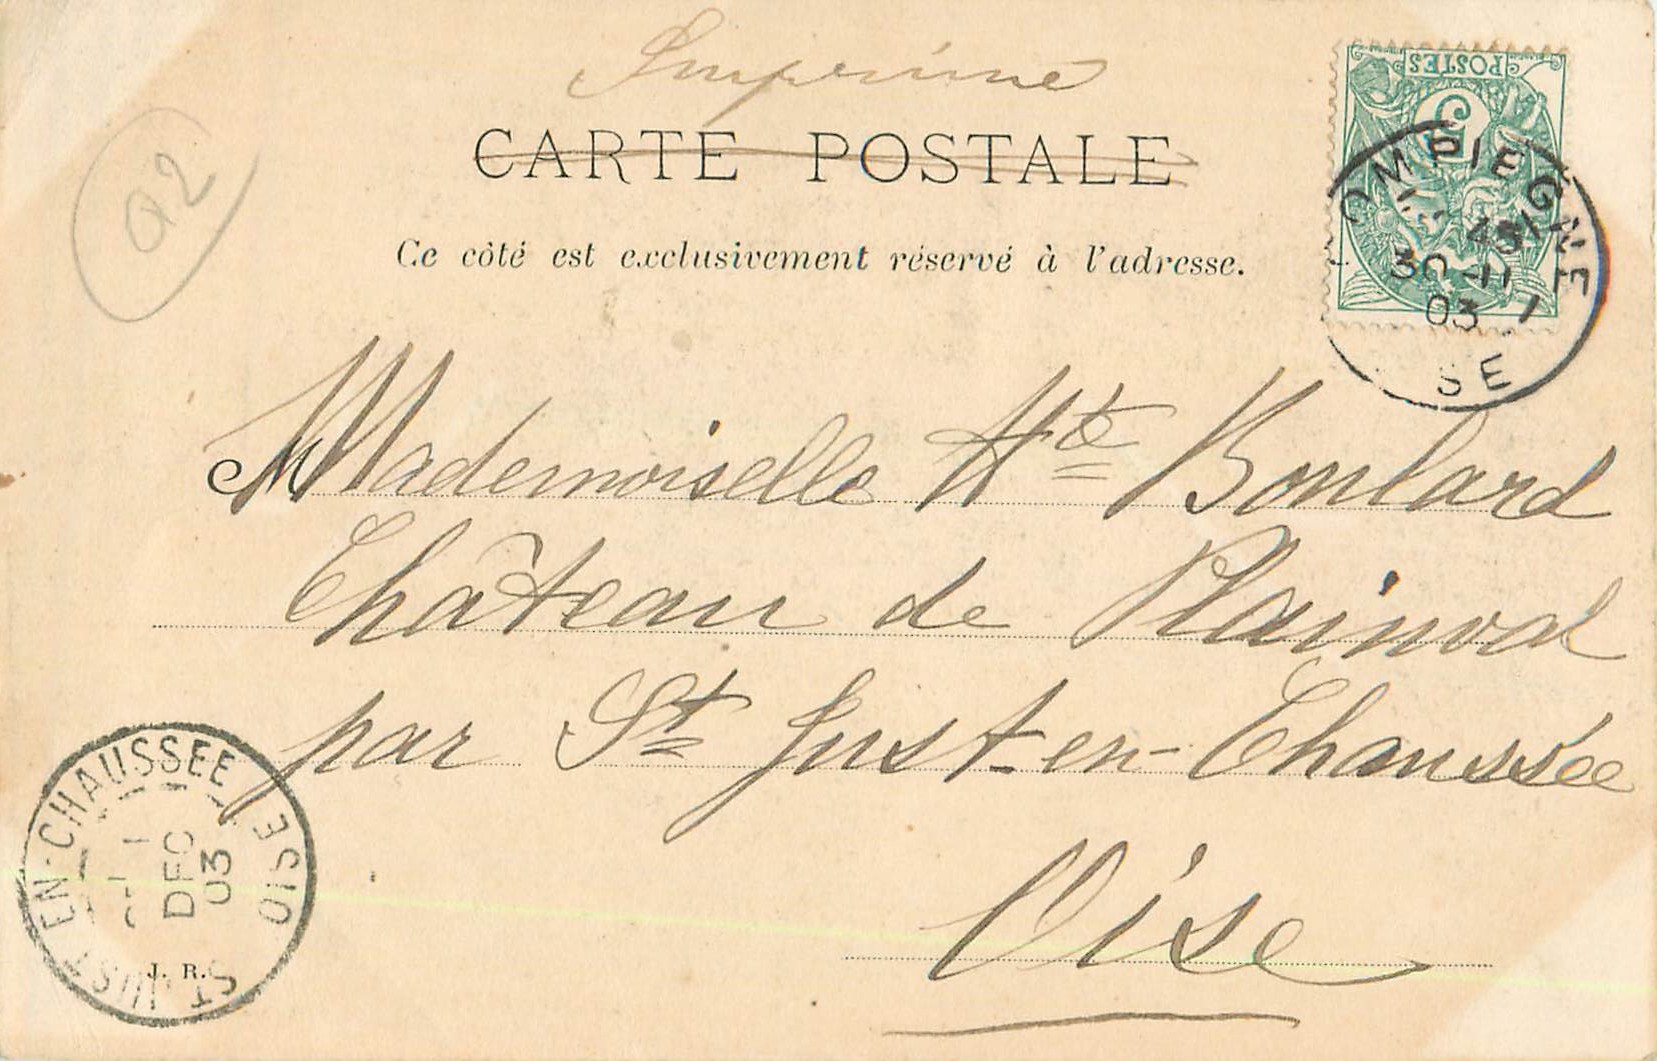 Imprimé
CARTE POSTALE
Ce côté est exclusivement réservé à l'adresse.
92
POSTES
5
COMPIEGNE
30-11
03
SE
Mademoiselle Hte Boulard
Château de Plainval
par St Just-en-Chaussée
Oise
ST JUST EN-CHAUSSEE OISE
1
DEC
03
J. R.